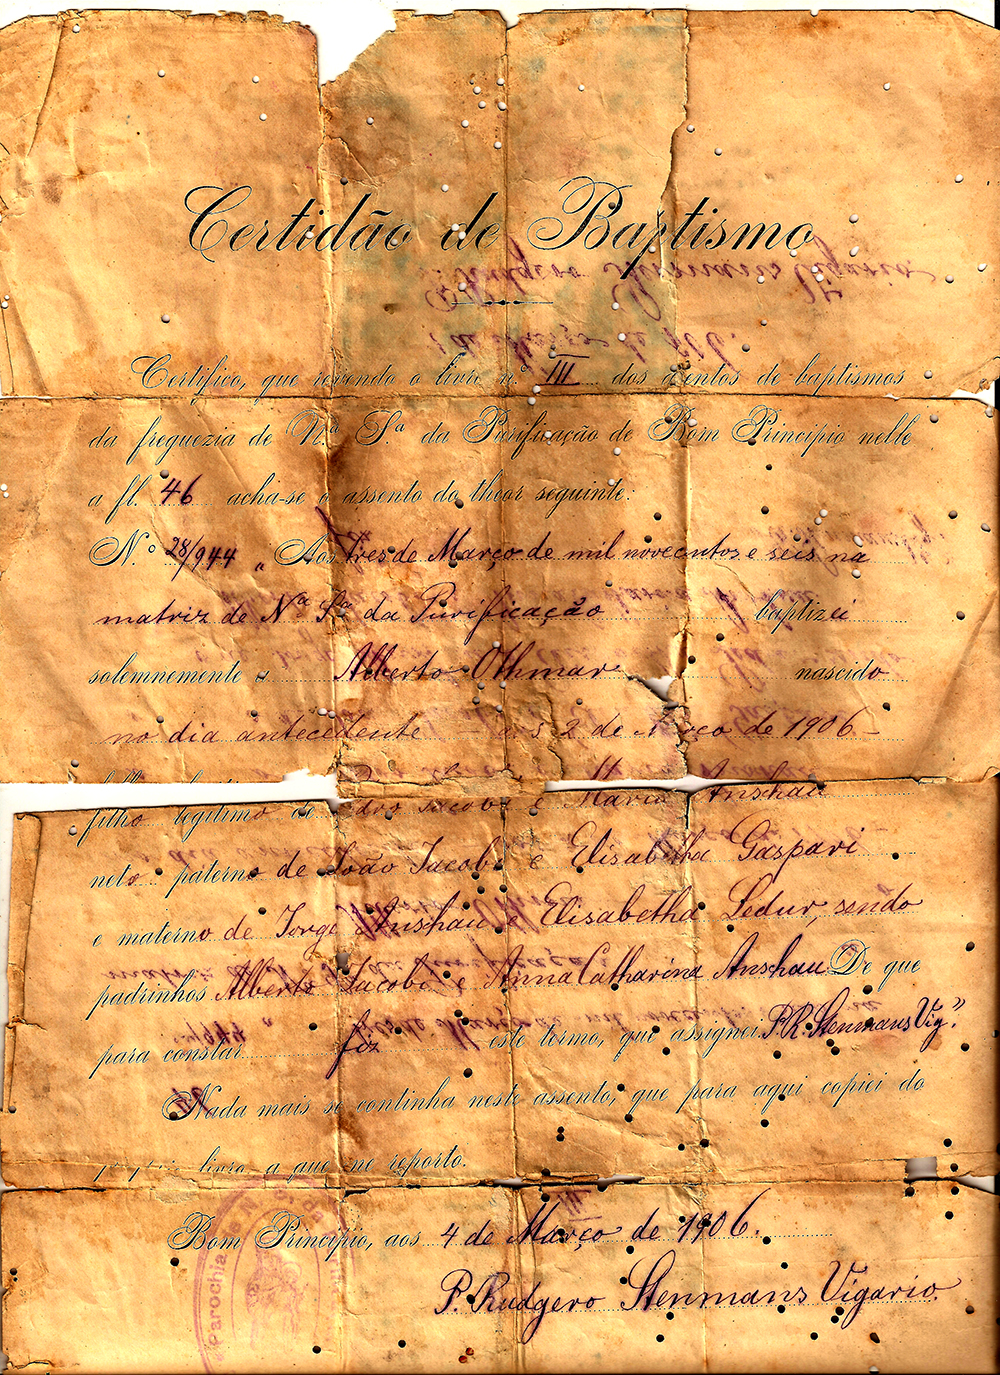 Certidão de Baptismo
Certifico, que revendo o livro n.º III dos assentos de baptismos
da freguezia de N.ª S.ª da Purificação de Bom Principio nelle
a fl. 46 acha-se o assento do theor seguinte:
N.º 28/944 „ Aos tres de Março de mil novecentos e seis na
matriz de N.ª S.ª da Purificação baptizei
solemnemente a Alberto Othmar nascido
no dia antecedente - a s 2 de Março de 1906 -
filho legitimo de Pedro Jacobi e Maria Anschau
neto paterno de João Jacobi e Elisabetha Gaspari
e materno de Jorge Anschau e Elisabetha Ledur, sendo
padrinhos Alberto Jacobi e Anna Catharina Anschau De que
para constar fiz este termo, que assignei P. R. Stenmans Vig.”
Nada mais se continha neste assento, que para aqui copiei do
proprio livro a que me reporto.
Bom Principio, aos 4 de Março de 1906.
P. Rudgero Stenmans Vigario.
Parochia de N. S.